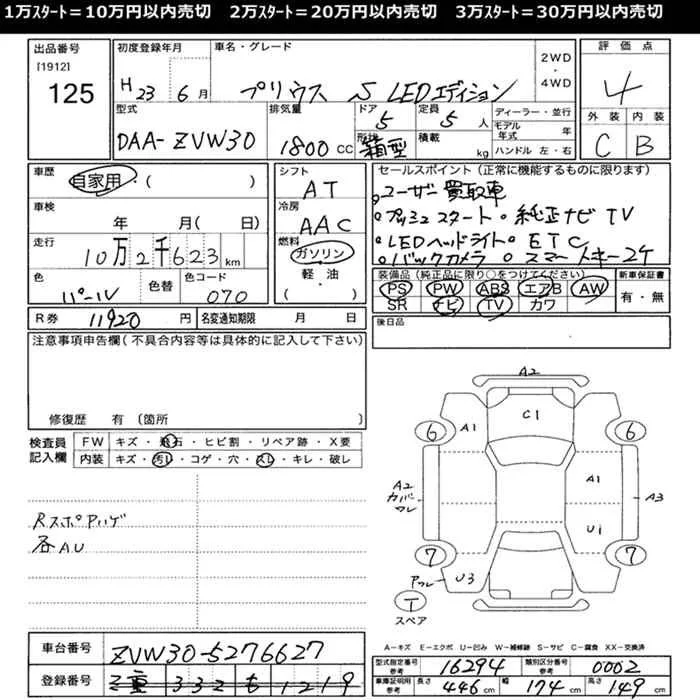 1万ｽﾀｰﾄ＝10万円以内売切 2万ｽﾀｰﾄ＝20万円以内売切 3万ｽﾀｰﾄ＝30万円以内売切
出品番号
[1912]
125
初度登録年月
H 23 6月
車名・グレード
プリウス S LEDエディション
2WD
・
4WD
評価点
4
外装 内装
C B
型式
DAA-ZVW30
排気量
1800 CC
ドア
5
形状
箱型
定員
5 人
積載
kg
ディーラー・並行
モデル年式 年
ハンドル 左・右
車歴
自家用・( )
車検
年 月( 日)
走行
10万2千623km
色
パール
色替
色コード
070
シフト
AT
冷房
AAC
燃料
ガソリン
・
軽・油
( )
セールスポイント(正常に機能するものに限ります)
。ユーザー買取車
。プッシュスタート。純正ナビTV
。LEDヘッドライト。ETC
。バックカメラ 。スマートキー2ケ
装備品(純正品に限り○をつけてください)
PS PW ABS エアB AW
SR ナビ TV カワ
新車保証書
有・無
R券 11920 円
名変通知期限 月 日
後日品
注意事項申告欄(不具合内容等は具体的に記入して下さい)
修復歴 有 (箇所 )
検査員
記入欄
FW キズ・飛石・ヒビ割・リペア跡・X要
内装 キズ・汚レ・コゲ・穴・スレ・キレ・破レ
Rスポアハゲ
各AU
A2
C1
6 A1 6
A2
カバー
ワレ
A1
A3
U1
7 7
U3
T
スペア
A－キズ E－エクボ U－凹み W－補修跡 S－サビ C－腐食 XX－交換済
車台番号 ZVW30-5276627
登録番号 三重 332 も 1219
型式指定番号
参考
16294
類別区分番号
参考
0002
車庫証明用
参考
長さ 446cm 幅 174cm 高さ 149cm